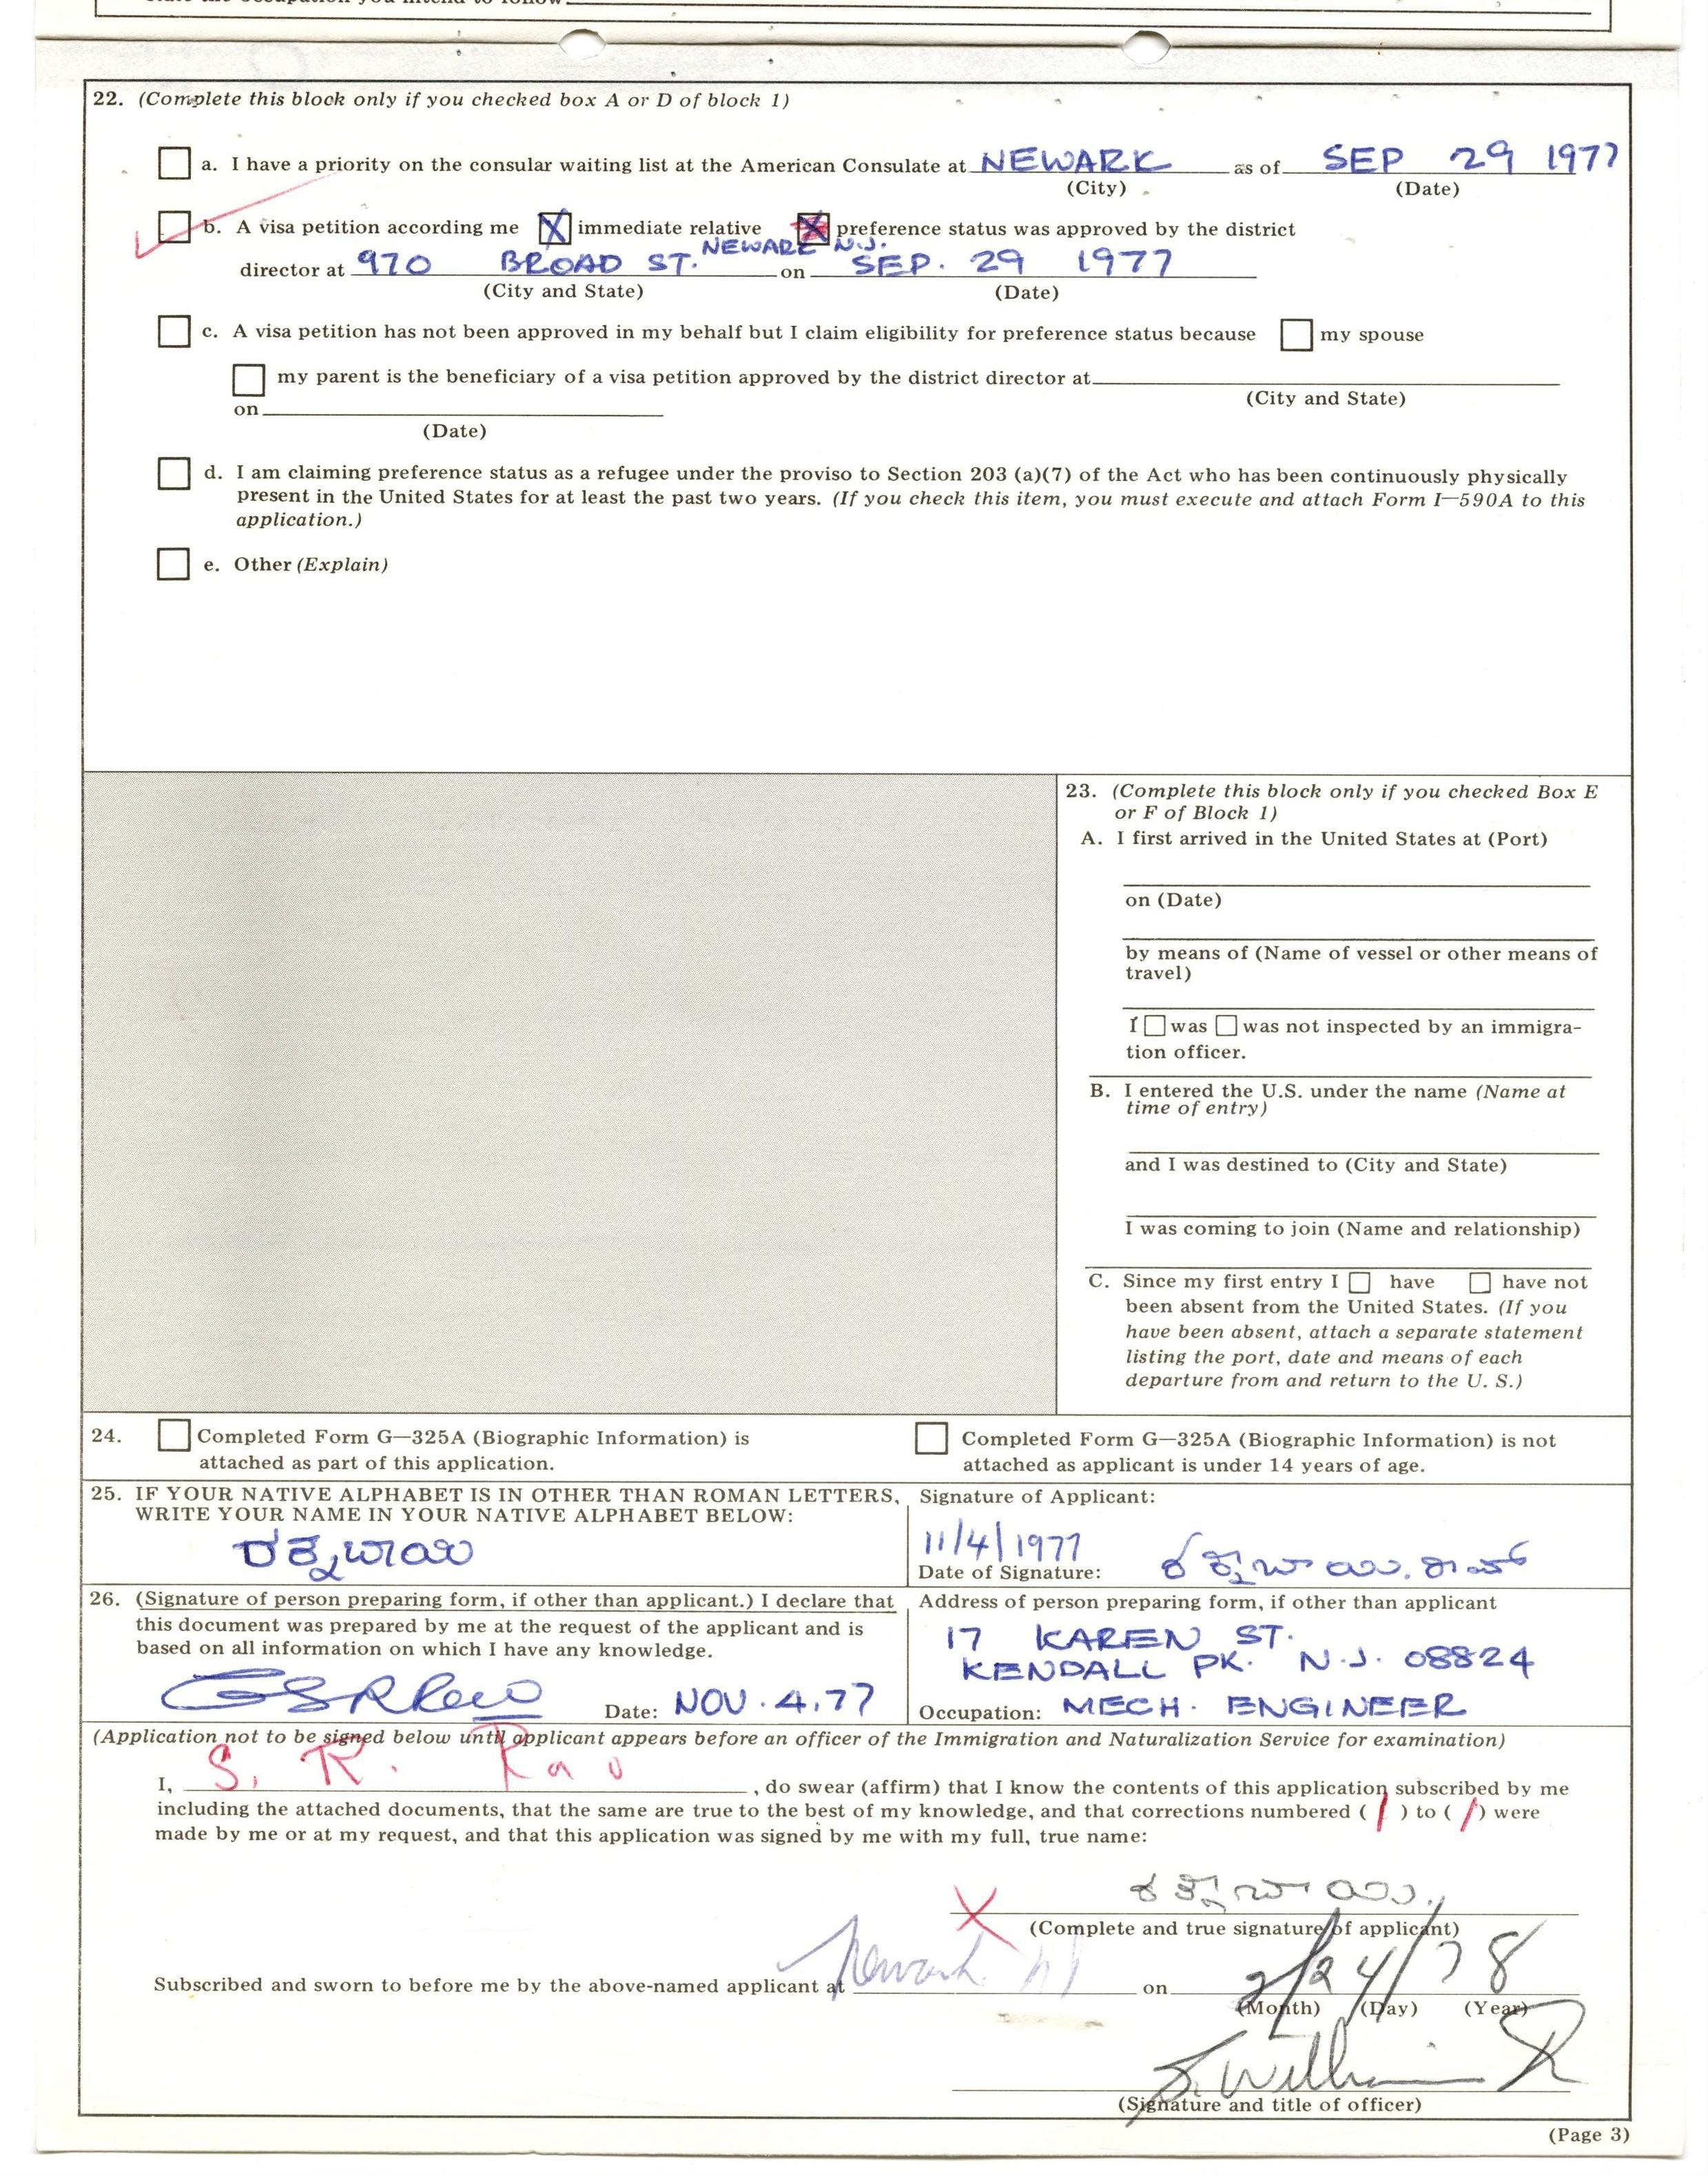 22. (Complete this block only if you checked box A or D of block 1)
a. I have a priority on the consular waiting list at the American Consulate at NEWARK as of SEP 29 1977
(City) (Date)
b. A visa petition according me X immediate relative X preference status was approved by the district
NEWARK N.J.
director at 970 BROAD ST. on SEP. 29 1977
(City and State) (Date)
c. A visa petition has not been approved in my behalf but I claim eligibility for preference status because my spouse
my parent is the beneficiary of a visa petition approved by the district director at
(City and State)
on
(Date)
d. I am claiming preference status as a refugee under the proviso to Section 203 (a)(7) of the Act who has been continuously physically
present in the United States for at least the past two years. (If you check this item, you must execute and attach Form I—590A to this
application.)
e. Other (Explain)
23. (Complete this block only if you checked Box E
or F of Block 1)
A. I first arrived in the United States at (Port)
on (Date)
by means of (Name of vessel or other means of
travel)
I was was not inspected by an immigra-
tion officer.
B. I entered the U.S. under the name (Name at
time of entry)
and I was destined to (City and State)
I was coming to join (Name and relationship)
C. Since my first entry I have have not
been absent from the United States. (If you
have been absent, attach a separate statement
listing the port, date and means of each
departure from and return to the U. S.)
24. Completed Form G—325A (Biographic Information) is
attached as part of this application.
Completed Form G—325A (Biographic Information) is not
attached as applicant is under 14 years of age.
25. IF YOUR NATIVE ALPHABET IS IN OTHER THAN ROMAN LETTERS,
WRITE YOUR NAME IN YOUR NATIVE ALPHABET BELOW:
Signature of Applicant:
11/4/1977
Date of Signature:
26. (Signature of person preparing form, if other than applicant.) I declare that
this document was prepared by me at the request of the applicant and is
based on all information on which I have any knowledge.
GSRRao Date: NOV. 4, 77
Address of person preparing form, if other than applicant
17 KAREN ST.
KENDALL PK. N.J. 08824
Occupation: MECH. ENGINEER
(Application not to be signed below until applicant appears before an officer of the Immigration and Naturalization Service for examination)
I, S. R. Rao , do swear (affirm) that I know the contents of this application subscribed by me
including the attached documents, that the same are true to the best of my knowledge, and that corrections numbered ( / ) to ( / ) were
made by me or at my request, and that this application was signed by me with my full, true name:
X
(Complete and true signature of applicant)
Subscribed and sworn to before me by the above-named applicant at Newark NJ on 2/24/78
(Month) (Day) (Year)
(Signature and title of officer)
(Page 3)